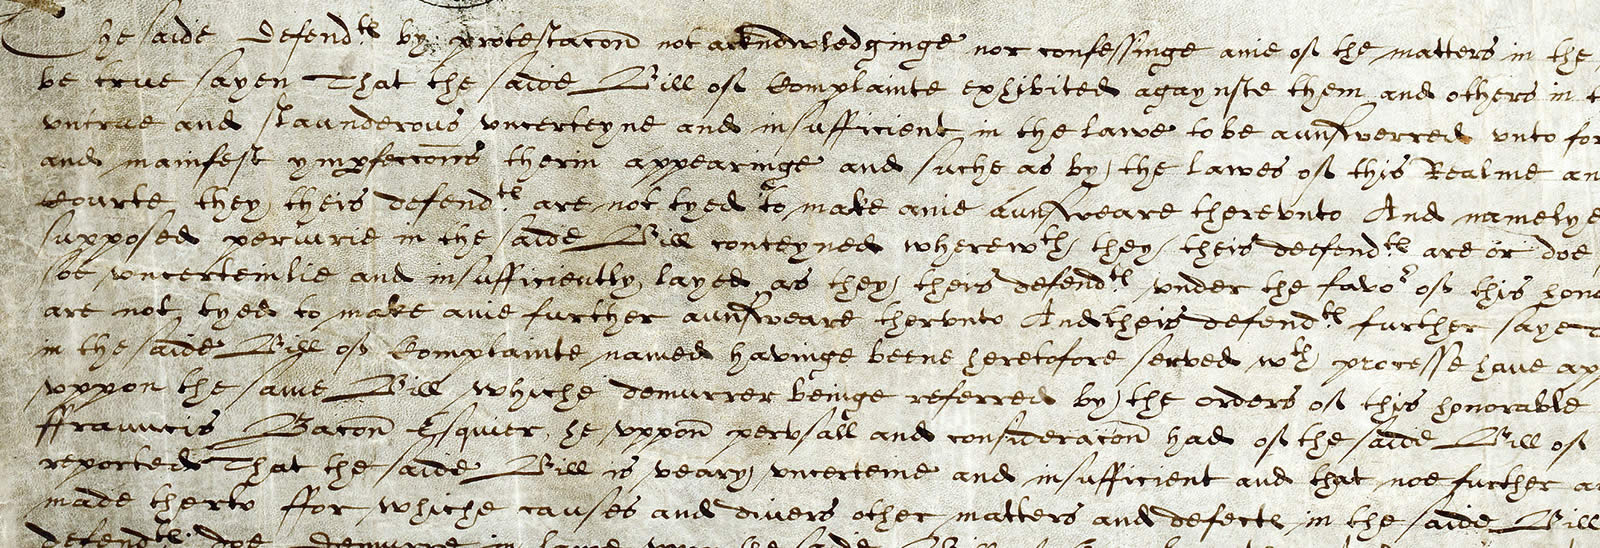 The saide defendtes by protestacon not acknowledginge nor confessinge anie of the matters in the
be true sayen That the saide Bill of Complainte exhibited agaynste them and others in
vntrue and slaunderous vncerteyne and insufficient in the lawe to be aunswerred vnto for
and manifest ymperfeccons therin appearinge and suche as by the lawes of this Realme an
Courte they theis defendtes are not tyed to make anie aunsweare therevnto And namelye
supposed periurie in the saide Bill conteyned wherewth they theis deefendtes are or doe
soe vncerteinlie and insufficiently layed as they theis defendtes vnder the favor of this hono
are not tyed to make anie further aunsweare thervnto And theis defendtes further saye
in the saide Bill of Complainte named havinge beene heretofore served wth processe haue ap
vppon the same Bill whiche demurrer beinge referred by the orders of this honorable
ffrauncis Bacon Esquier he vppon pervsall and consideracon had of the saide Bill of
reported That the saide Bill is veary vncerteine and insufficient and that noe further a
made therto ffor whiche causes and divers other matters and defectes in the saide Bill
defendtes doe demurre in lawe vpon the saide Bill